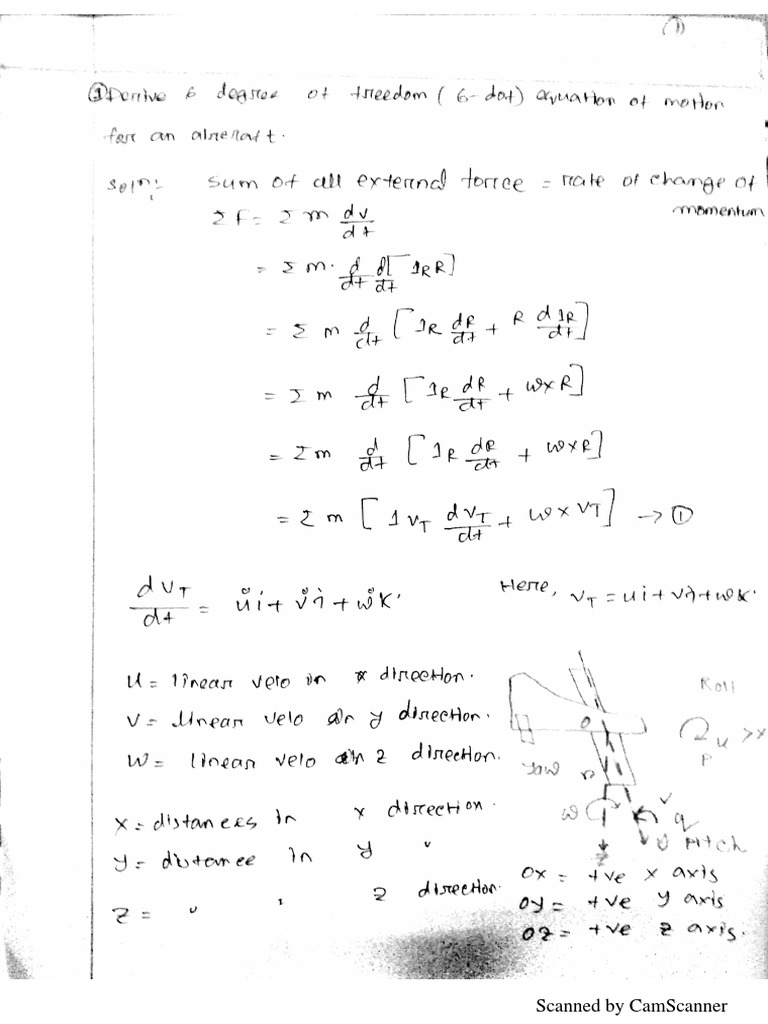 ①
① Derive 6 degree of freedom ( 6-dof) equation of motion
for an aircraft.
Soln:- sum of all external force = rate of change of
momentum
Σ F = Σ m dv/dt
= Σ m. d/dt d/dt [ 1R R ]
= Σ m d/dt [ 1R dR/dt + R d1R/dt ]
= Σ m d/dt [ 1R dR/dt + ω×R ]
= Σ m d/dt [ 1R dR/dt + ω×R ]
= Σ m [ 1VT dVT/dt + ω × VT ] → ①
dVT/dt = ůi + v̊j + ẘk. Here, VT = ui + vj + wk.
U = linear velo in x direction.
V = linear velo in y direction.
W = linear velo in z direction.
X = distances in x direction.
Y = distance in y "
Z = " " z direction.
Roll
O
u > x
P
yaw r
w
v
q
pitch
z
OX = +ve X axis
OY = +ve Y axis
OZ = +ve Z axis.
Scanned by CamScanner